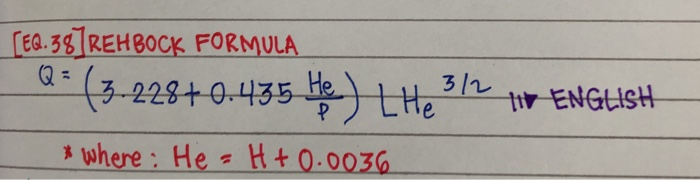 [EQ.38] REHBOCK FORMULA
Q = (3.228 + 0.435 He/P) LHe^3/2 ENGLISH
* where : He = H + 0.0036